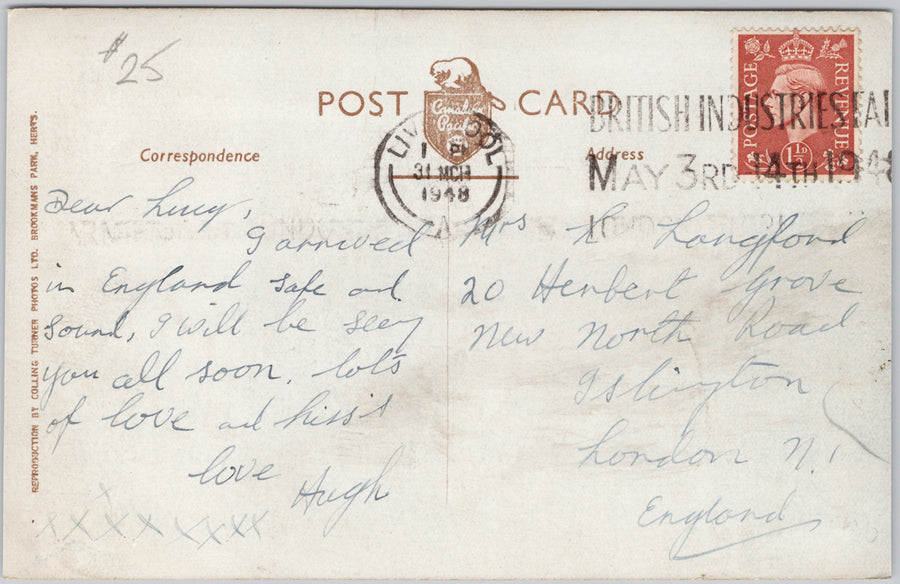 $25
POST CARD
Canadian
Pacific
Correspondence
Address
POSTAGE
REVENUE
1½D
LIVERPOOL
1 PM
31 MCH
1948
A
BRITISH INDUSTRIES FAI
MAY 3RD 14TH 1948
LONDON
Dear Lucy,
I arrived
in England safe and
sound, I will be seeing
you all soon. lots
of love and kiss's
love
Hugh
x
x x x x x x x x
Mrs L Langford
20 Herbert Grove
New North Road
Islington
London N.1
England
REPRODUCTION BY COLLING TURNER PHOTOS LTD. BROOKMANS PARK, HERTS.